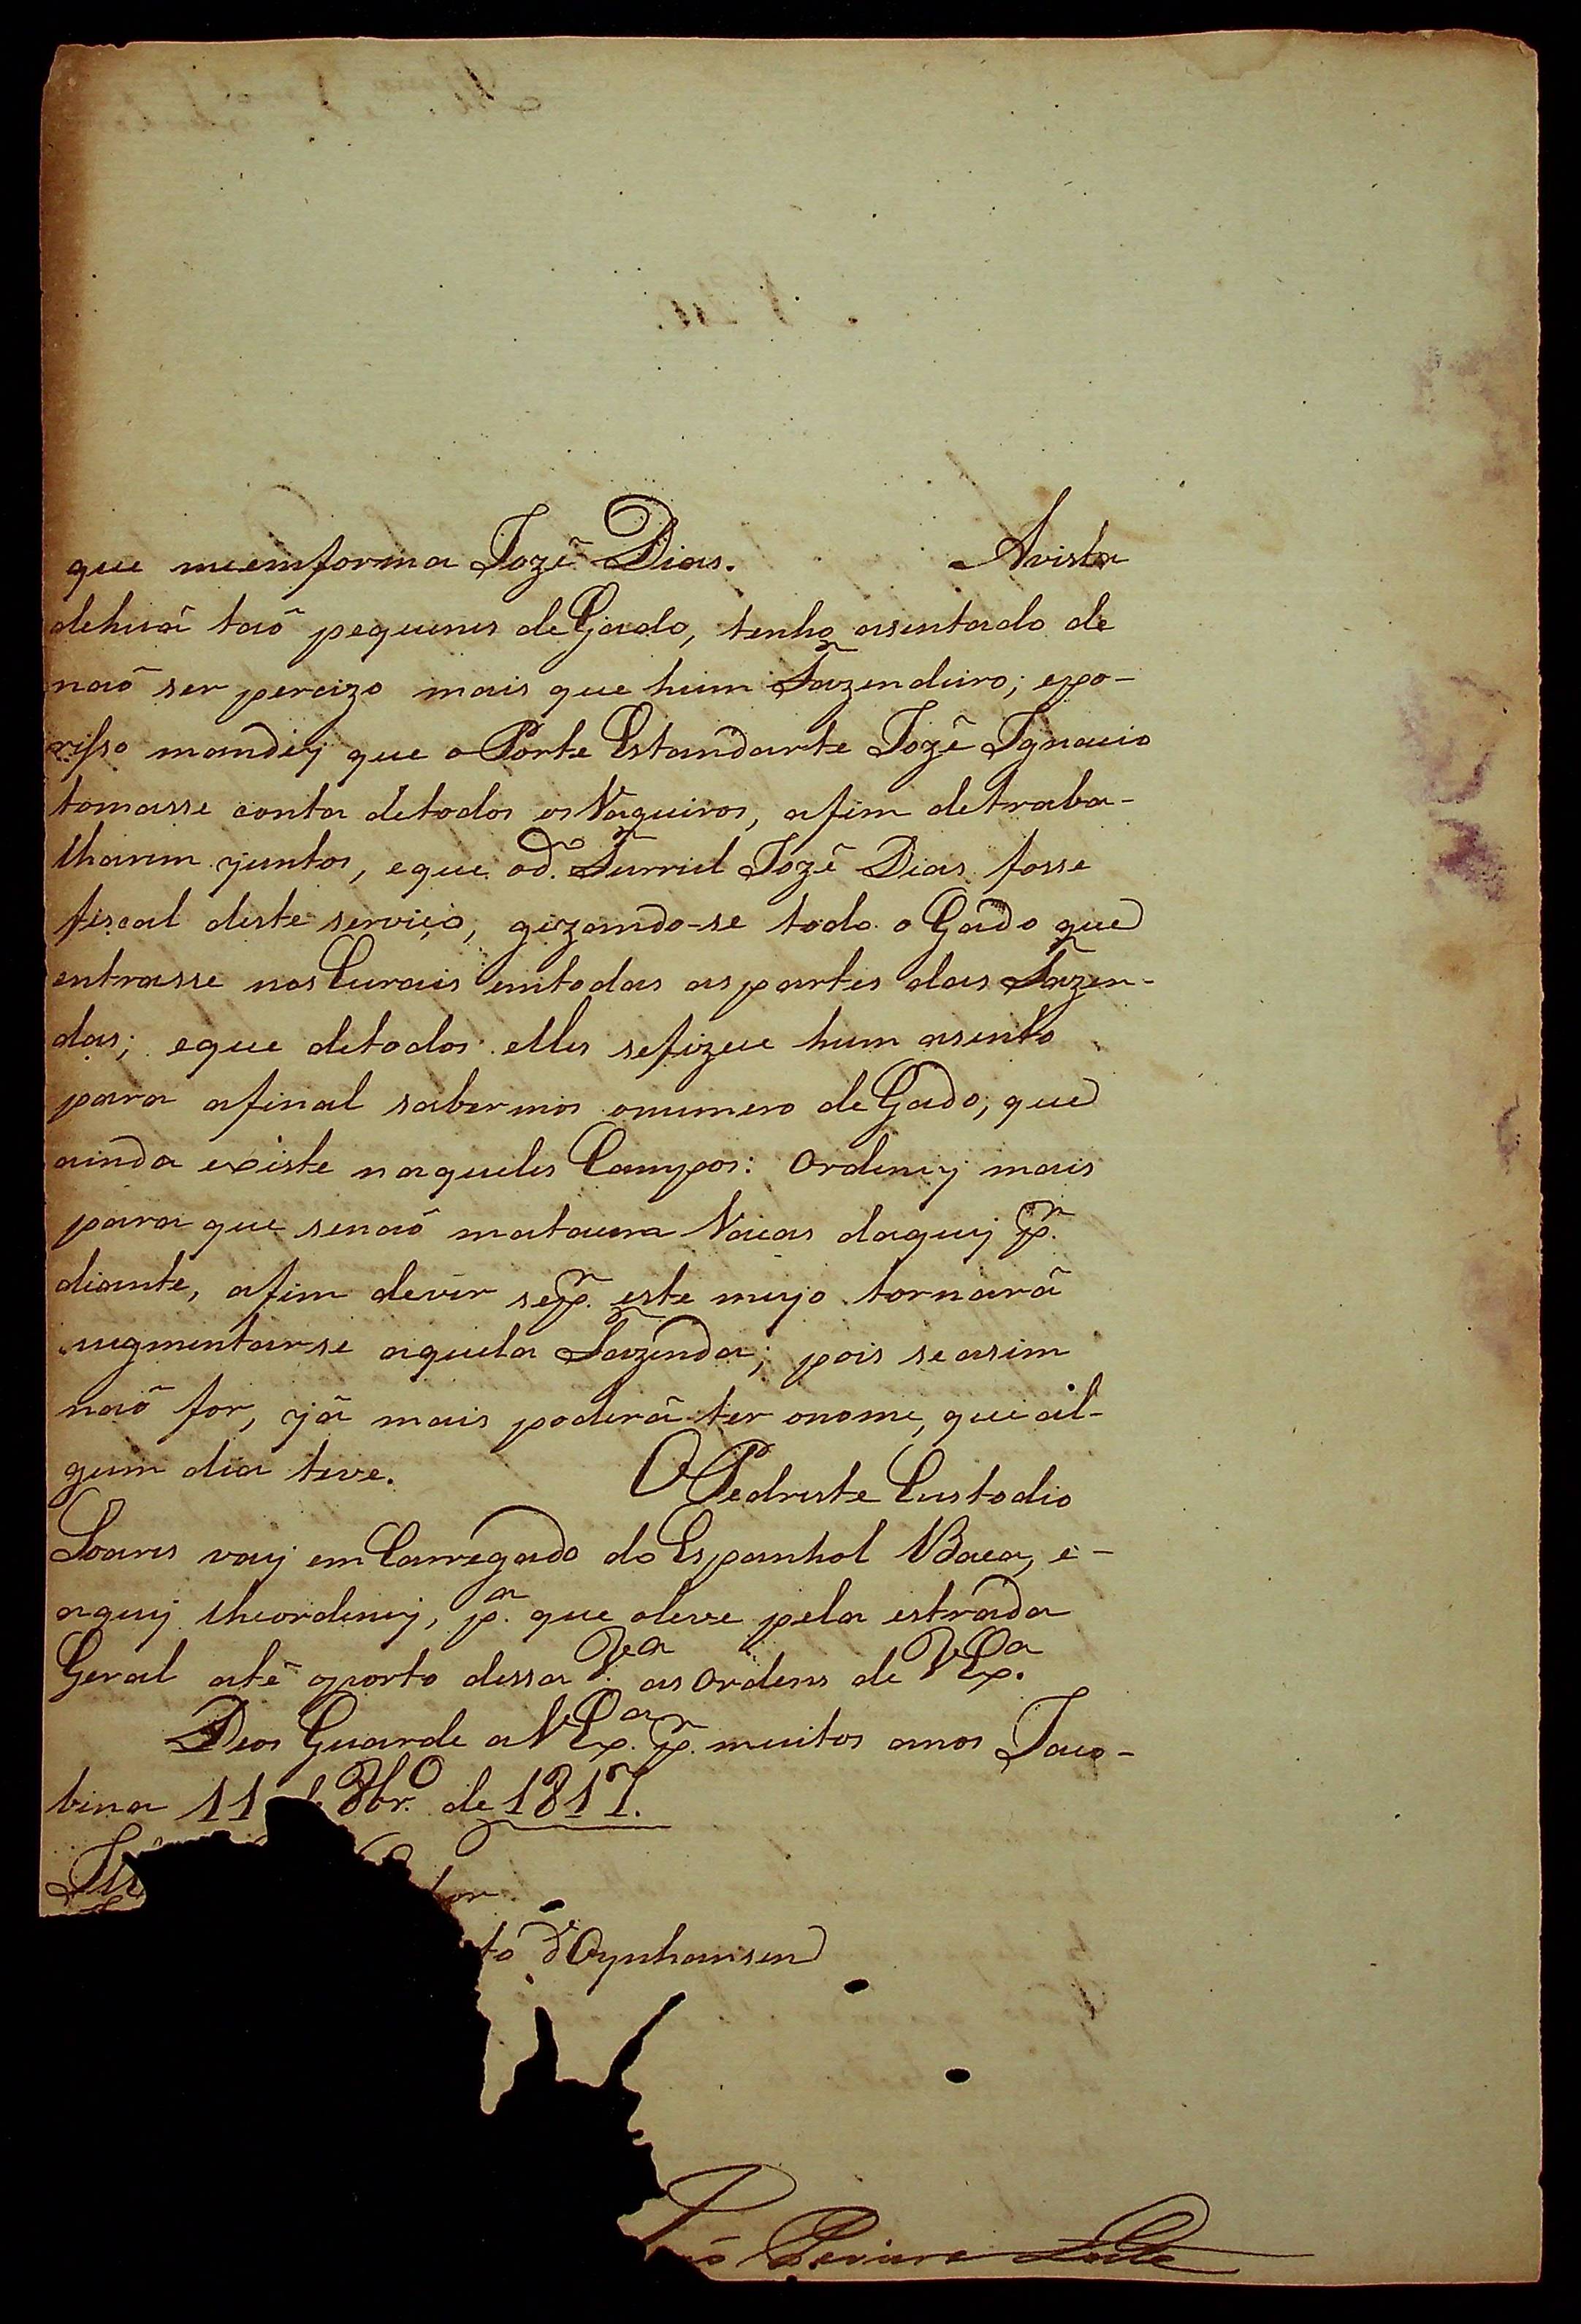 que meemforma Jozê Dias. Avista
dehuâ taõ pequenes de Gado, tenho asentado de
naõ ser percizo mais que hum Fazendeiro; epo-
risso mandey que o Porte Estandarte Jozê Ignacio
tomasse conta detodos os Vaqueiros, afim detraba-
lharem juntos, eque od.º Furriel Jozê Dias fosse
fiscal deste serviço, gizando-se todo o Gado que
entrasse nos Curais emtodas aspartes das Fazen-
das; eque detodos elles sefizece hum asento
para afinal sabermos onumero de Gado, que
ainda existe naqueles Campos: Ordeney mais
para que senaõ matacem Vacas daquy p.ª
diante, afim dever sep.r este meyo tornarâ
augmentarse aquela Fazenda; pois seasim
naõ for, jâ mais poderâ ter onome, que al-
gum dia teve. O Pedreste Custodio
Soares vay emCarregado do Espanhol Baca, e-
aquy lheordeney, p.ª que oleve pela estrada
Geral atê oporto dessa V.ª as Ordens de VEx.ª
Deos Guarde a VEx.ª p.r muitos anos Jaco-
bina 11 de 8br.º de 1817.
hor
to d'Oynhausen
Pereira Leite